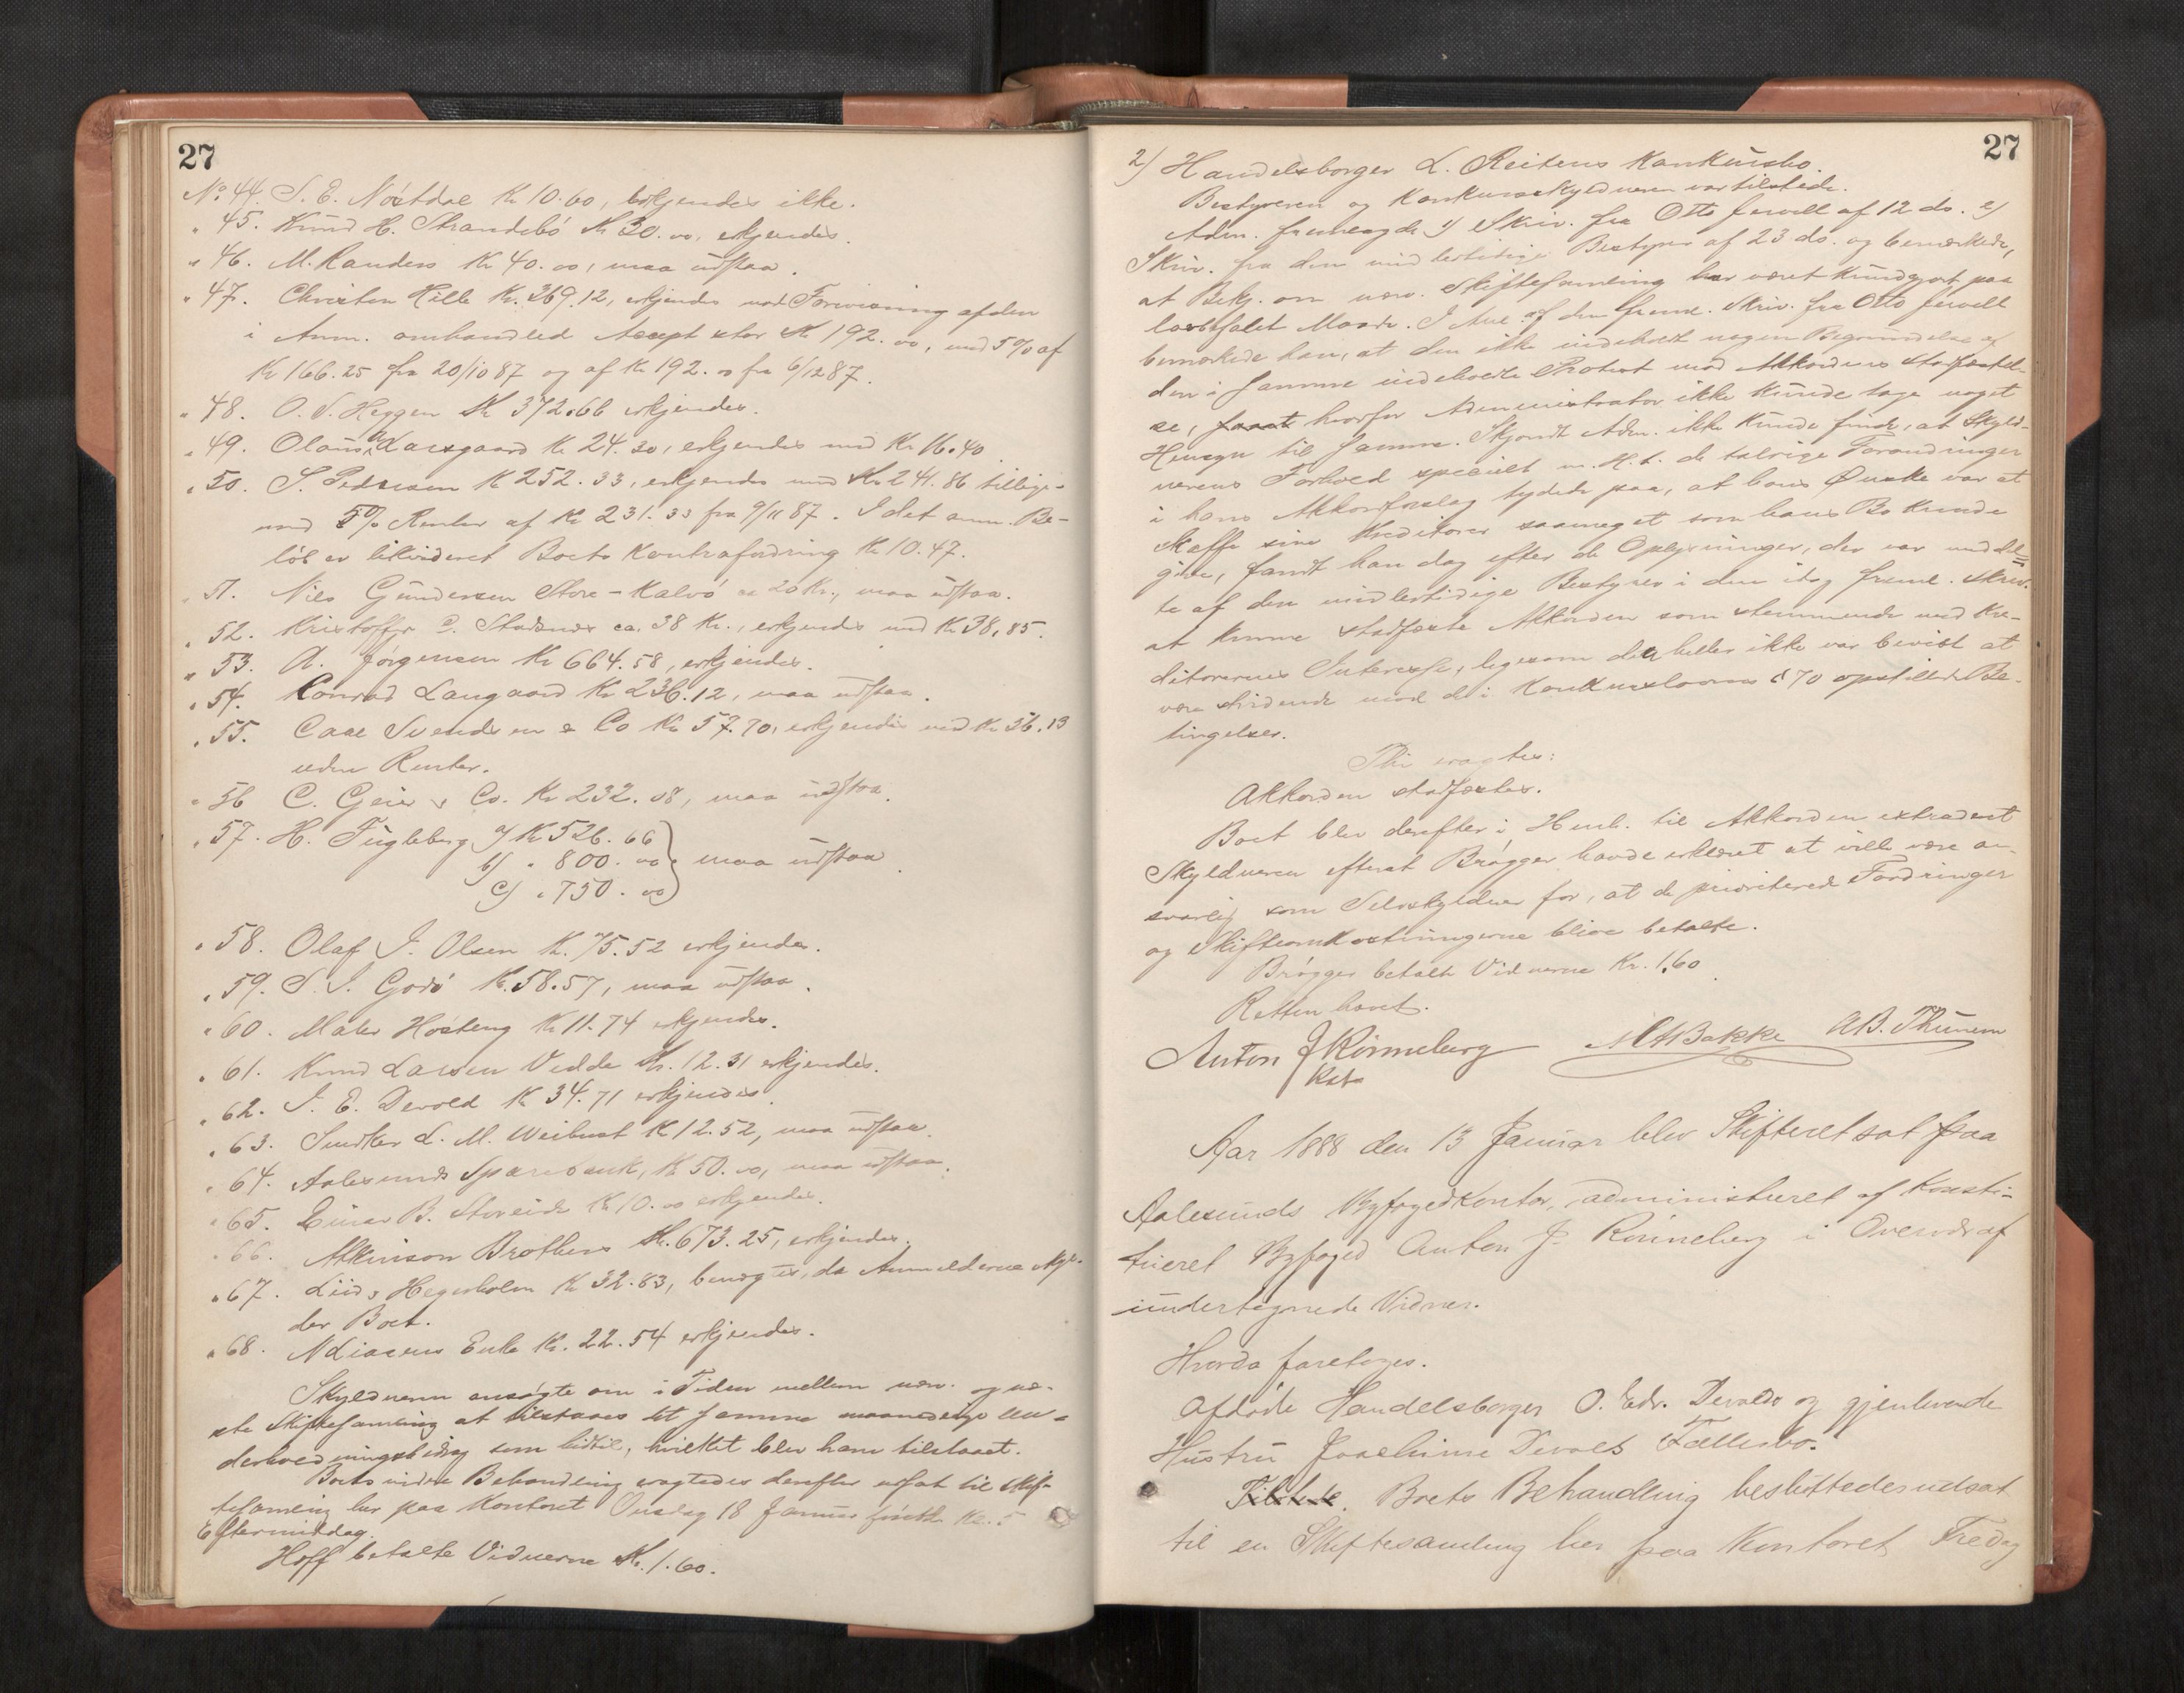 27
No. 44. S. E. Nøstdal Kr 10.60, erkjendes ikke.
" 45. Knud H. Strandabø Kr 30.00, erkjendes.
" 46. M. Randers Kr 40.00, maa udstaa.
" 47. Christen Hille Kr. 369.12, erkjendes mod Forevisning af den
i Anm. omhandled Accept stor Kr 192.00, med 5% af
Kr 166.25 fra 20/10 87 og af Kr 192.00 fra 6/12 87.
" 48. O. S. Heggen Kr 372.66 erkjendes.
" 49. Olaus Aarsgaard Kr 24.30, erkjendes med Kr 16.40
" 50. S. Pedersen Kr 252.33, erkjendes med Kr 241.86 tillige-
med 5% Renter af Kr 231.33 fra 9/11 87. I det anm. Be-
løb er likvideret Boets Kontrafordring Kr 10.47.
" 51. Nils Gundersen Store-Kalvø ca 20 Kr., maa udstaa.
" 52. Kristoffer P. Stadsnes ca. 38 Kr., erkjendes med Kr 38,85.
" 53. A. Jørgensen Kr 664.58, erkjendes.
" 54. Konrad Langaard Kr 236.12, maa udstaa.
" 55. Carl Svendsen & Co Kr 57.70, erkjendes med Kr 56.13
uden Renter.
" 56 C. Geijer & Co. Kr 232.08, maa udstaa.
" 57. H. Fugleberg a) Kr 526.66
b) " 800.00 maa udstaa.
c) " 750.00
" 58. Olaf J. Olsen Kr. 75.52 erkjendes.
" 59. S. S. Godø Kr. 58.57, maa udstaa.
" 60. Maler Høsteng Kr 11.74 erkjendes.
" 61. Knud Larsen Vedde Kr. 12.31 erkjendes.
" 62. J. E. Devold Kr 34.71 erkjendes.
" 63. Snedker L. M. Weibust Kr 12.52, maa udstaa.
" 64. Aalesunds Sparebank, Kr 50.00, maa udstaa.
" 65. Einar B. Storeide Kr 10.00 erkjendes.
" 66. Atkinson Brothers Kr. 673.25, erkjendes.
" 67. Liid & Hegerholm Kr 32.83, benægtes, da Anmelderne skyl-
der Boet.
" 68. N Liaaens Enke Kr. 22.54 erkjendes.
Skyldneren ansøgte om i Tiden mellem nærv. og næ-
ste Skiftesamling at tilstaaes det samme maanedlige Un-
derholdningsbidrag som hidtil, hvilket blev ham tilstaaet.
Boets videre Behandling eragtedes derefter udsat til Skif-
tesamling her paa Kontoret Onsdag 18 Januar førstk. Kl. 5
Eftermiddag.
Hoff betalte Vidnerne Kr. 1.60.
27
2) Handelsborger L. Reitens Konkursbo.
Bestyreren og Konkursskyldneren var tilstede.
Adm. fremlagde 1) Skriv. fra Otto Jervell af 12 ds. 2)
Skriv. fra den midlertidige Bestyrer af 23 ds. og bemærkede,
at Bekj. om nærv. Skiftesamling har været kundgjort paa
lovbefalet Maade. I Anl. af den freml. Skriv. fra Otto Jervell
bemærkede han, at den ikke indeholdt nogen Begrundelse af
den i samme indeholdte Protest mod Akkordens Stadfæstel-
se, hvorfor Administrator ikke kunde tage noget
Hensyn til samme. Skjøndt Adm. ikke kunde finde, at Skyld-
nerens Forhold specielt m. H. t. de talrige Forandringer
i hans Akkordforslag tydede paa, at hans Ønske var at
skaffe sine Kreditorer saameget som hans Bo kunde
give, fandt han dog efter de Oplysninger, der var meddel-
te af den midlertidige Bestyrer i den idag freml. Skriv.
at kunne stadfæste Akkorden som stemmende med Kre-
ditorernes Interesse, ligesom den heller ikke var bevist at
være stridende mod de i Konkurslovens § 70 opstillede Be-
tingelser.
Thi eragtes:
Akkorden stadfæstes.
Boet blev derefter i Henh. til Akkorden extraderet
Skyldneren efterat Brøgger havde erklæret at ville være an-
svarlig som Selvskyldner for, at de prioriterede Fordringer
og Skifteomkostningerne blive betalte.
Brøgger betalte Vidnerne Kr. 1.60
Retten hævet.
Anton J Rønneberg
Kst.
M A Bakke
A B. Thunem
Aar 1888 den 13 Januar blev Skifteret sat paa
Aalesunds Byfogedkontor, administreret af Konsti-
tueret Byfoged Anton J. Rønneberg i Overvær af
undertegnede Vidner.
Hvorda foretoges.
Afdøde Handelsborger O. Edv. Devolds og gjenlevende
Hustru Joachime Devolds Fællesbo.
Tilstede. Boets Behandling besluttedes udsat
til en Skiftesamling her paa Kontoret Fredag